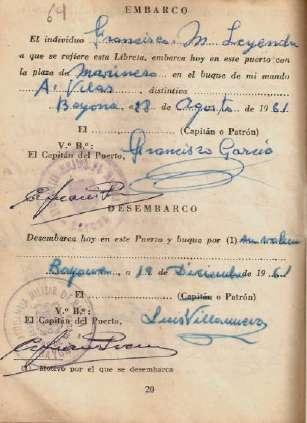 64
EMBARCO
El individuo Francisco M. Leyenda
a que se refiere esta Libreta, embarca hoy en este puerto con
la plaza de Marinero en el buque de mi mando
A. Vilas, distintivo
Bayona 28 Agosto de 1961
El (Capitán o Patrón)
V.º B.º:
El Capitán del Puerto, Francisco García
DESEMBARCO
Desembarca hoy en este Puerto y buque por (1)
Bayona a 19 Diciembre de 1961
El (Capitán o Patrón)
V.º B.º:
El Capitán del Puerto, Luis Villanueva
(1) Motivo por el que se desembarca
20